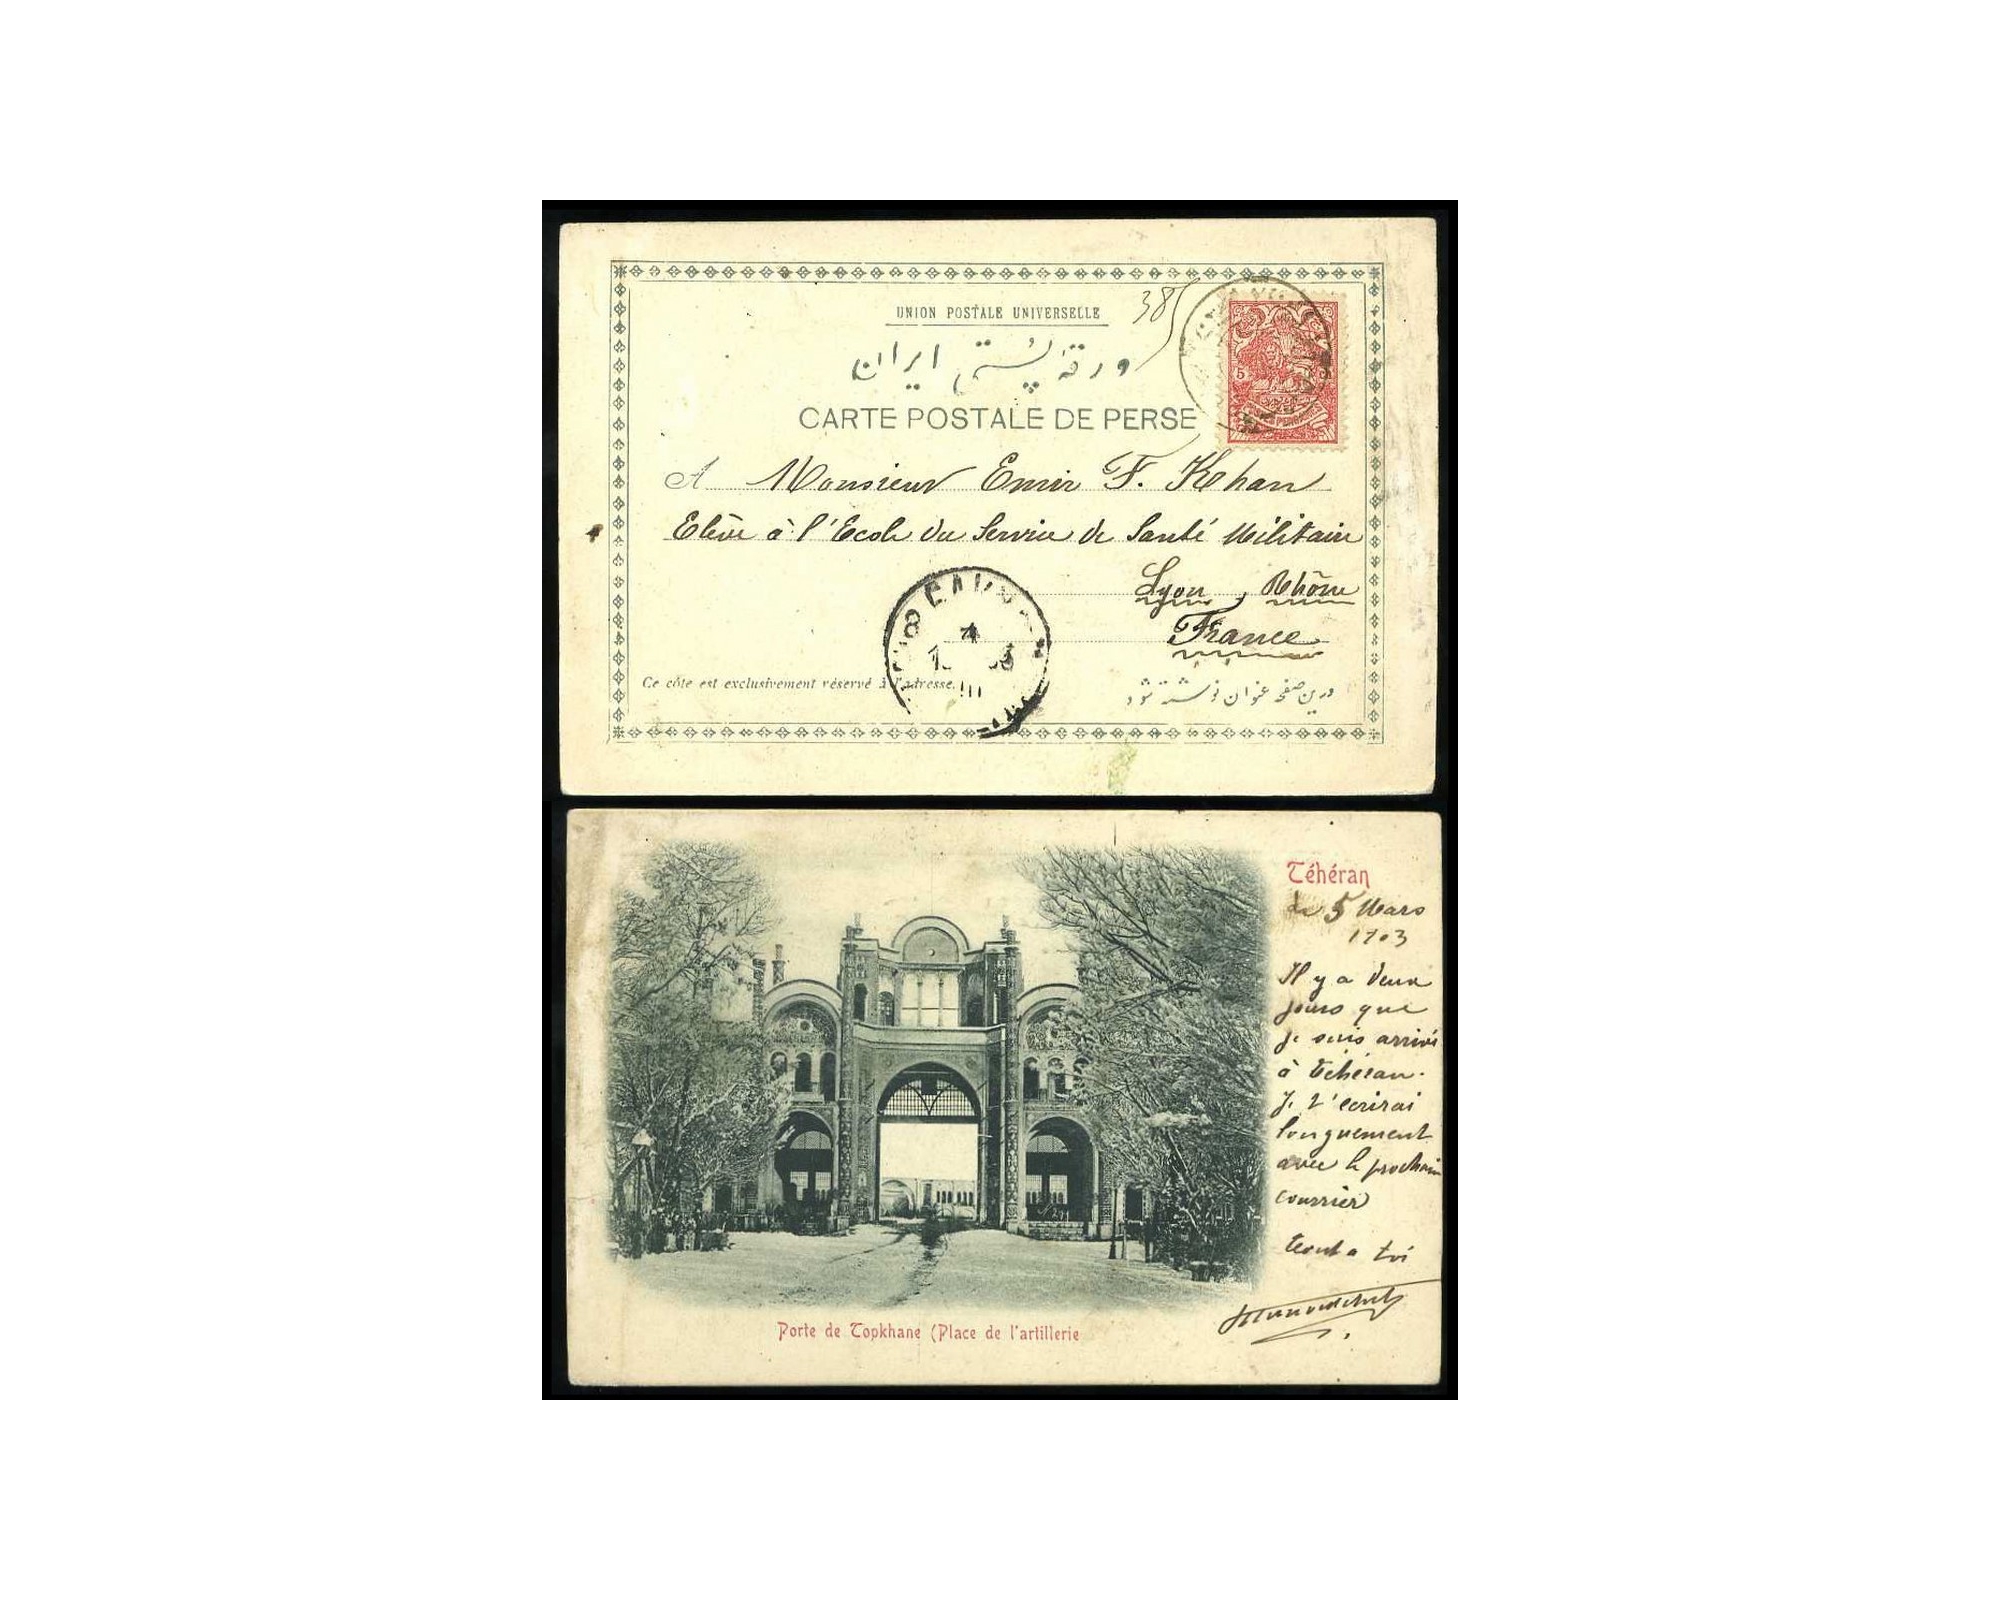 UNION POSTALE UNIVERSELLE
385
ورقهٔ پُستی ایران
CARTE POSTALE DE PERSE
5
A Monsieur Emir F. Khan
Elève à l'Ecole du Service de Santé Militaire
Lyon, Rhône
France
4
Ce côté est exclusivement réservé à l'adresse.
درین صفحه عنوان نوشته شود
Téhéran
le 5 Mars
1903
Il y a deux
jours que
je suis arrivé
à Téhéran.
Je t'écrirai
longuement
avec le prochain
courrier
Tout a toi
Porte de Topkhane (Place de l'artillerie